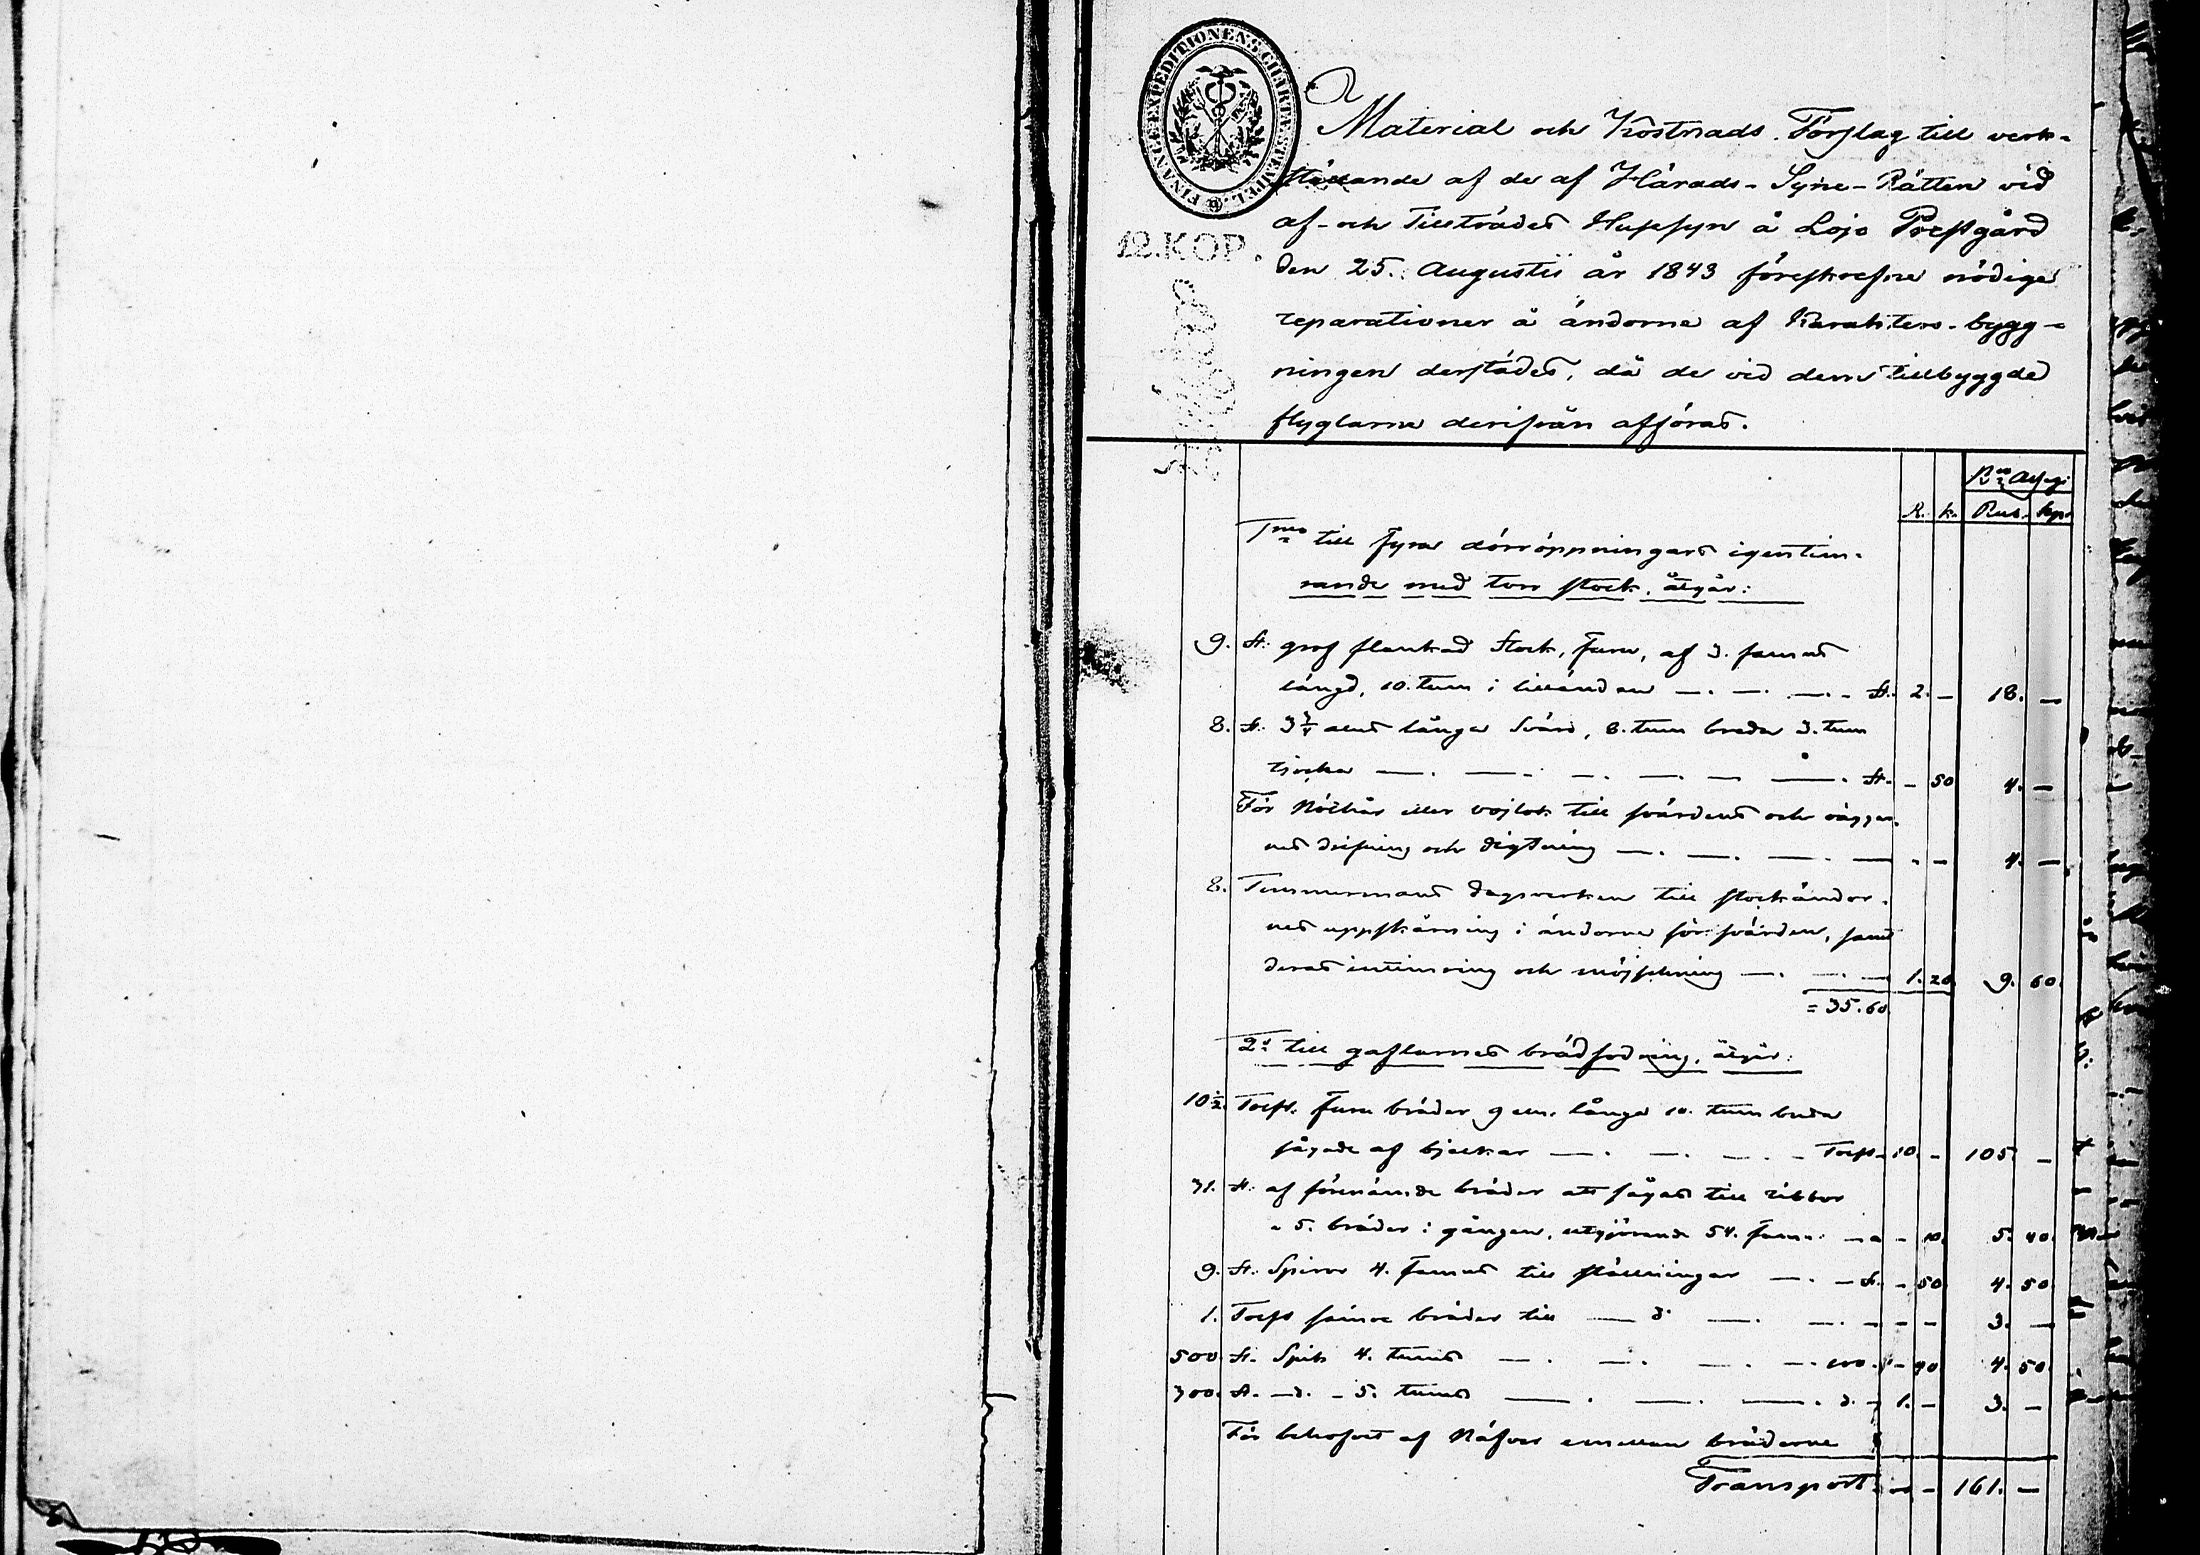 FINANCE EXPEDITIONENS CHARTÆ STEMPEL.
12. KOP.
Material och Kostnads Förslag till verk-
ställande af de af Härads-Syne-Rätten vid
af- och Tillträdes Husesyn å Lojo Prestgård
den 25. Augustii år 1843 föreskrefne nödige
reparationer å ändorne af Karakters-bygg-
ningen derstädes, då de vid dem tillbyggde
flyglarne derifrån afföras.
R. k. Rub. kop.
1mo till fyra dörröppningars igentim-
rande med torr stock, åtgår:
9. St: grof flankad Stock, furu, af 3. famns
längd, 10. tum i lilländan — St. 2. — 18. —
8. St. 3 3/4 alns långa Svärd, 8. tum breda 3. tum
tjocka — St. — 50 4. —
För Nöthår eller vojlok till svärdens och väggar-
nes drifning och digtning — — 4. —
8. Timmermans dagsverken till stockändor-
nes uppskärning i ändorne för svärden, samt
deras intimring och — 1. 20. 9. 60.
= 35.60.
2o till gaflarnes brädfodring, åtgår:
10 1/2. Tolft. furu bräder 9 aln. långa 10. tum breda
sågade af bjelkar — Tolft 10. — 105. —
31. St. af förenämnde bräder att sågas till ribbor
a 5. bräder i gången, utgjörande 54. famn. — 10. 5. 40.
9. St. Spiror 4. famns till ställningar — St. — 50. 4. 50.
1. Tolft sämre bräder till — d:o — — 3. —
500. St. Spik 4. tums — 100. — 90 4. 50.
300. St. — d. — 5. tums — d. — 1. — 3. —
För behofvet af Näfver emellan bräderne
Transport — 161. —